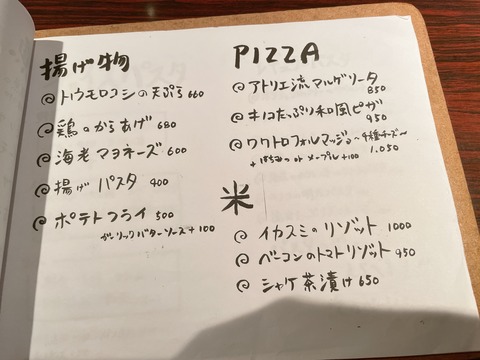 揚げ物
トウモロコシの天ぷら 660
鶏のからあげ 680
海老マヨネーズ 600
揚げパスタ 400
ポテトフライ 500
ガーリックバターソース+100
PIZZA
アトリエ流マルゲリータ
850
キノコたっぷり和風ピザ
950
クワトロフォルマッジョ~4種チーズ~
+はちみつorメープル+100 1,050
米
イカスミのリゾット 1000
ベーコンのトマトリゾット 950
シャケ茶漬け 650